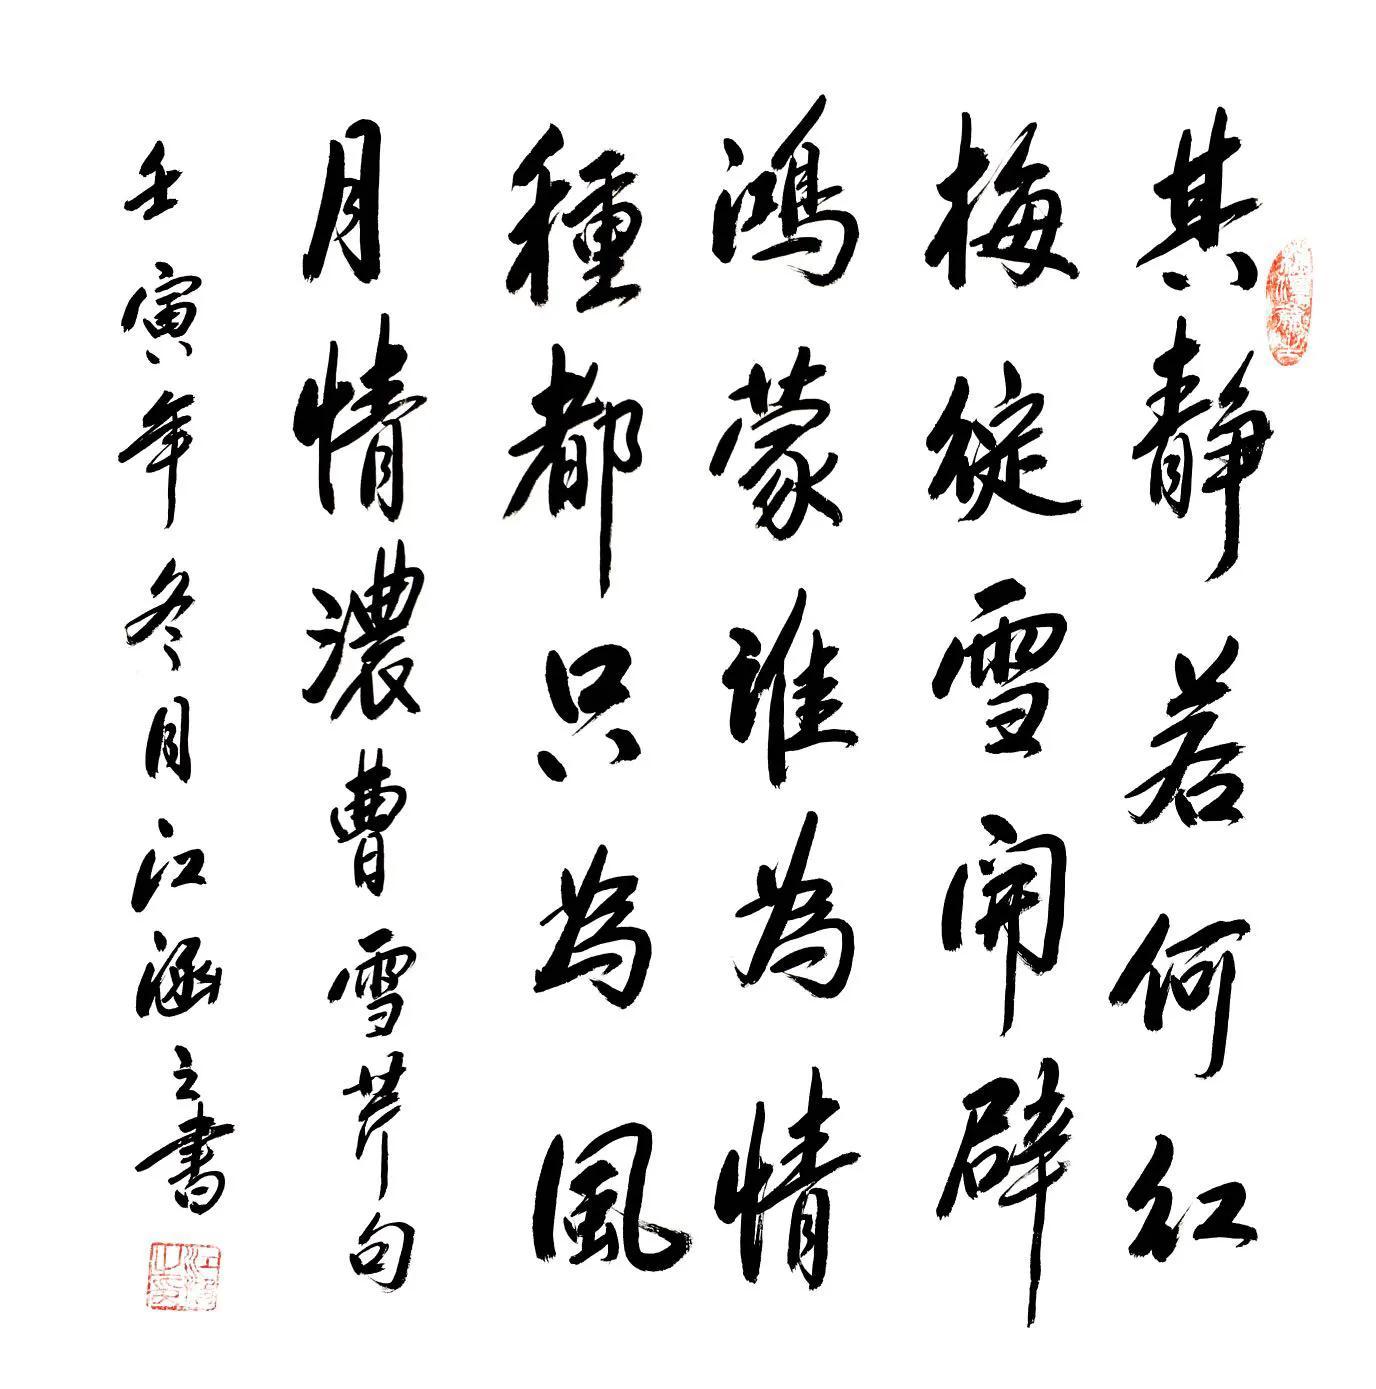 其静若何红
梅綻雪開辟
鸿蒙谁為情
種都只為風
月情濃曹雪芹句
壬寅年冬月江涵之書